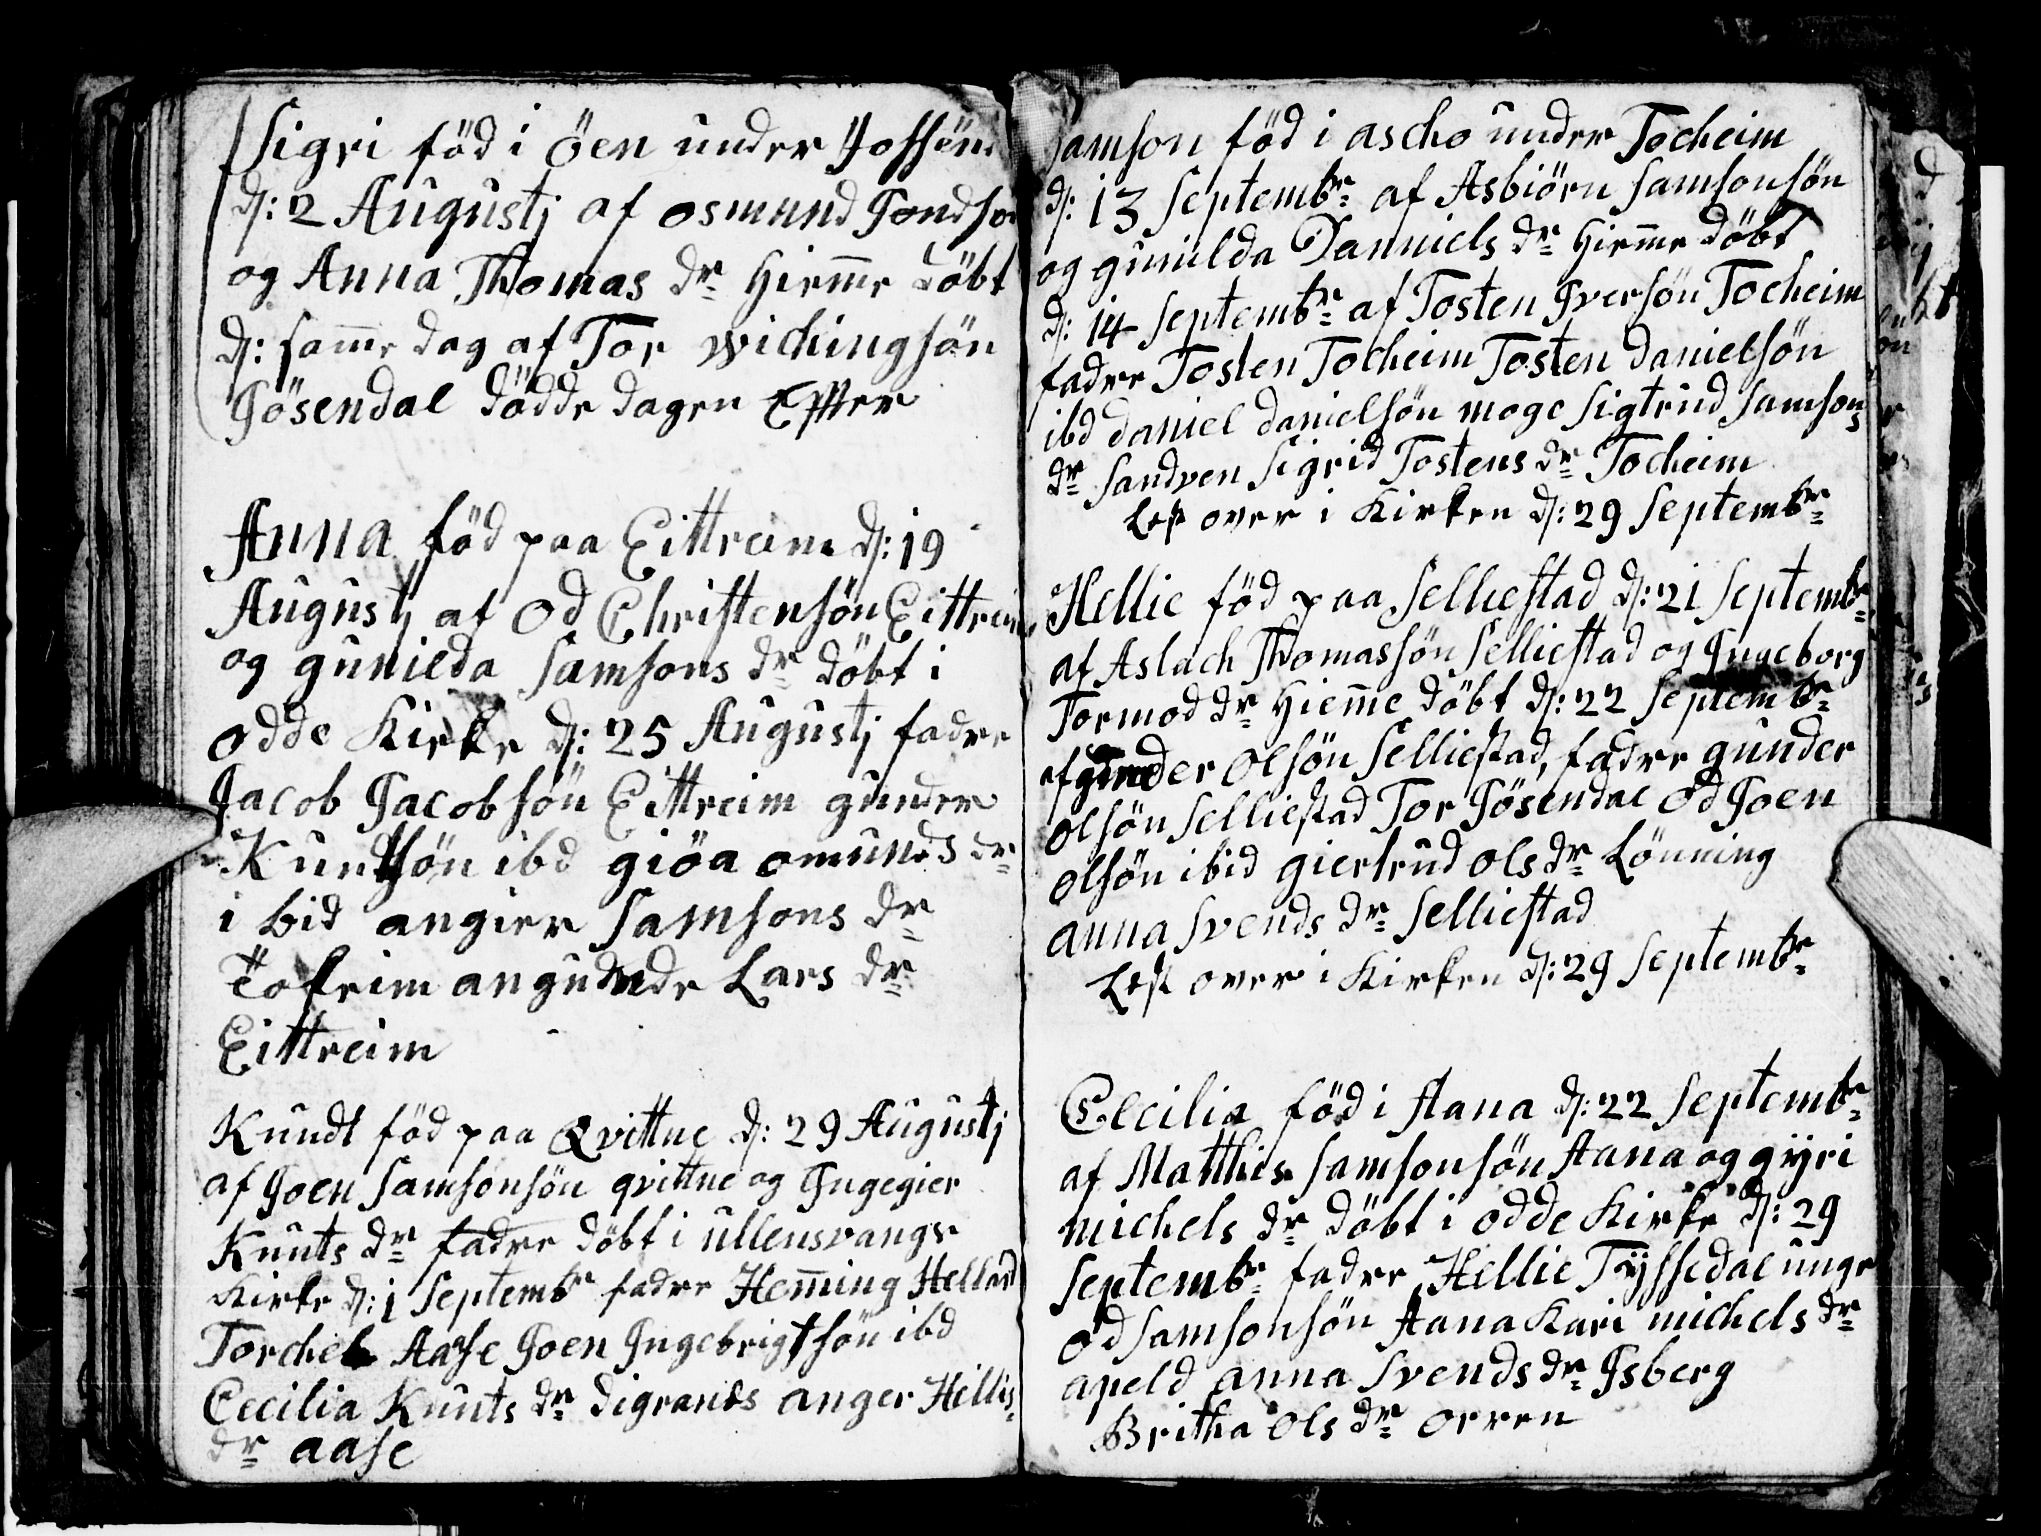 Sigri föd i öen under Jossend
d: 2 Augustj af osmund Jondsøn
og Anna Thomas dr hiemme döbt
d: samme dag af Tor wichingsön
Jösendal dödde dagen Effter
Anna föd paa Eittreim d: 19
Augustj af Od Christensön Eittreim
og gunilda Samsons dr döbt i
odde Kirke d: 25 Augustj fadre
Jacob Jacobsön Eittreim gunder
Kundsön ibd giöa omunds dr
i bid angier Samsons dr
Tokeim angunde Lars dr
Eittreim
Kundt föd paa Qvittne d: 29 Augustj
af Joen Samsonsön qvittne og Ingegier
Knuts dr fadre döbt i ullensvangs
Kirke d: 1 Septembr fadre Hemming Helland
Torchel Aase Joen Ingebrigtsön ibd
Cecilia Knuts dr digranes anger Hellis
dr aase
Samson föd i ascho under Tocheim
d: 13 Septembr af Asbiörn Samsonsön
og gunilda Danniels dr hiemme döbt
d: 14 Septembr af Tosten Iversön Tocheim
fadre Tosten Tocheim Tosten danielsön
ibd daniel danielsön moge Sigtrud Samsons
dr Sandven Sigrid Tostens dr Tocheim
Lest over i Kirken d: 29 Septembr
Hellie föd paa Selliestad d: 21 Septembr
af Aslach Thomassön Selliestad og Ingeborg
Tormod dr hiemme döbt d: 22 Septembr
af gunder olsön Selliestad, fadre gunder
olsön Selliestad Tor Jösendal Od Joen
olsön ibid giertrud ols dr Lönning
anna Svends dr Selliestad
Lest over i Kirken d: 29 Septembr
Cecilia föd i Aana d: 22 Septembr
af Matthis Samsonsön Aana og gyri
michels dr döbt i odde Kirke d: 29
Septembr fadre Hellie Tyssedal unge
od Samsonsön Aana Kari michels dr
apeld anna Svends dr Isberg
Britha ols dr orren